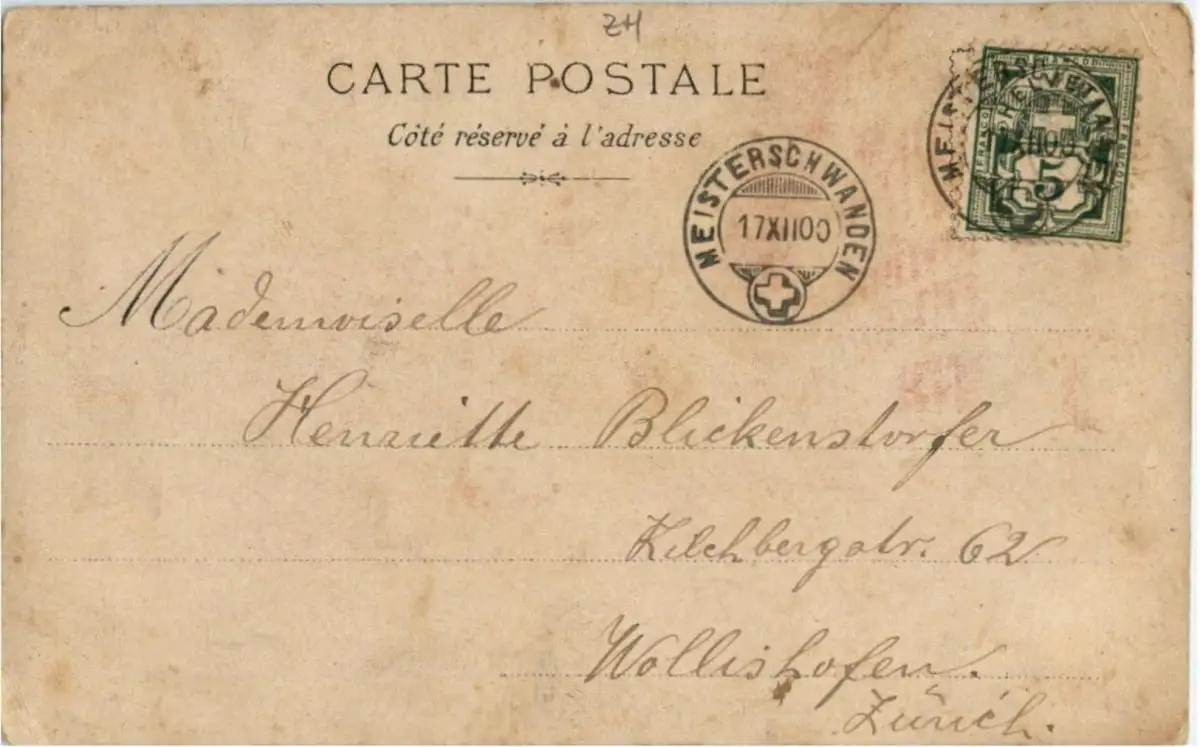 ZH
CARTE POSTALE
Côté réservé à l'adresse
MEISTERSCHWANDEN
17 XII 00
HELVETIA
FRANCO
FRANCO
5
Mademoiselle
Henriette Blickenstorfer
Kilchbergstr. 62
Wollishofen.
Zürich.